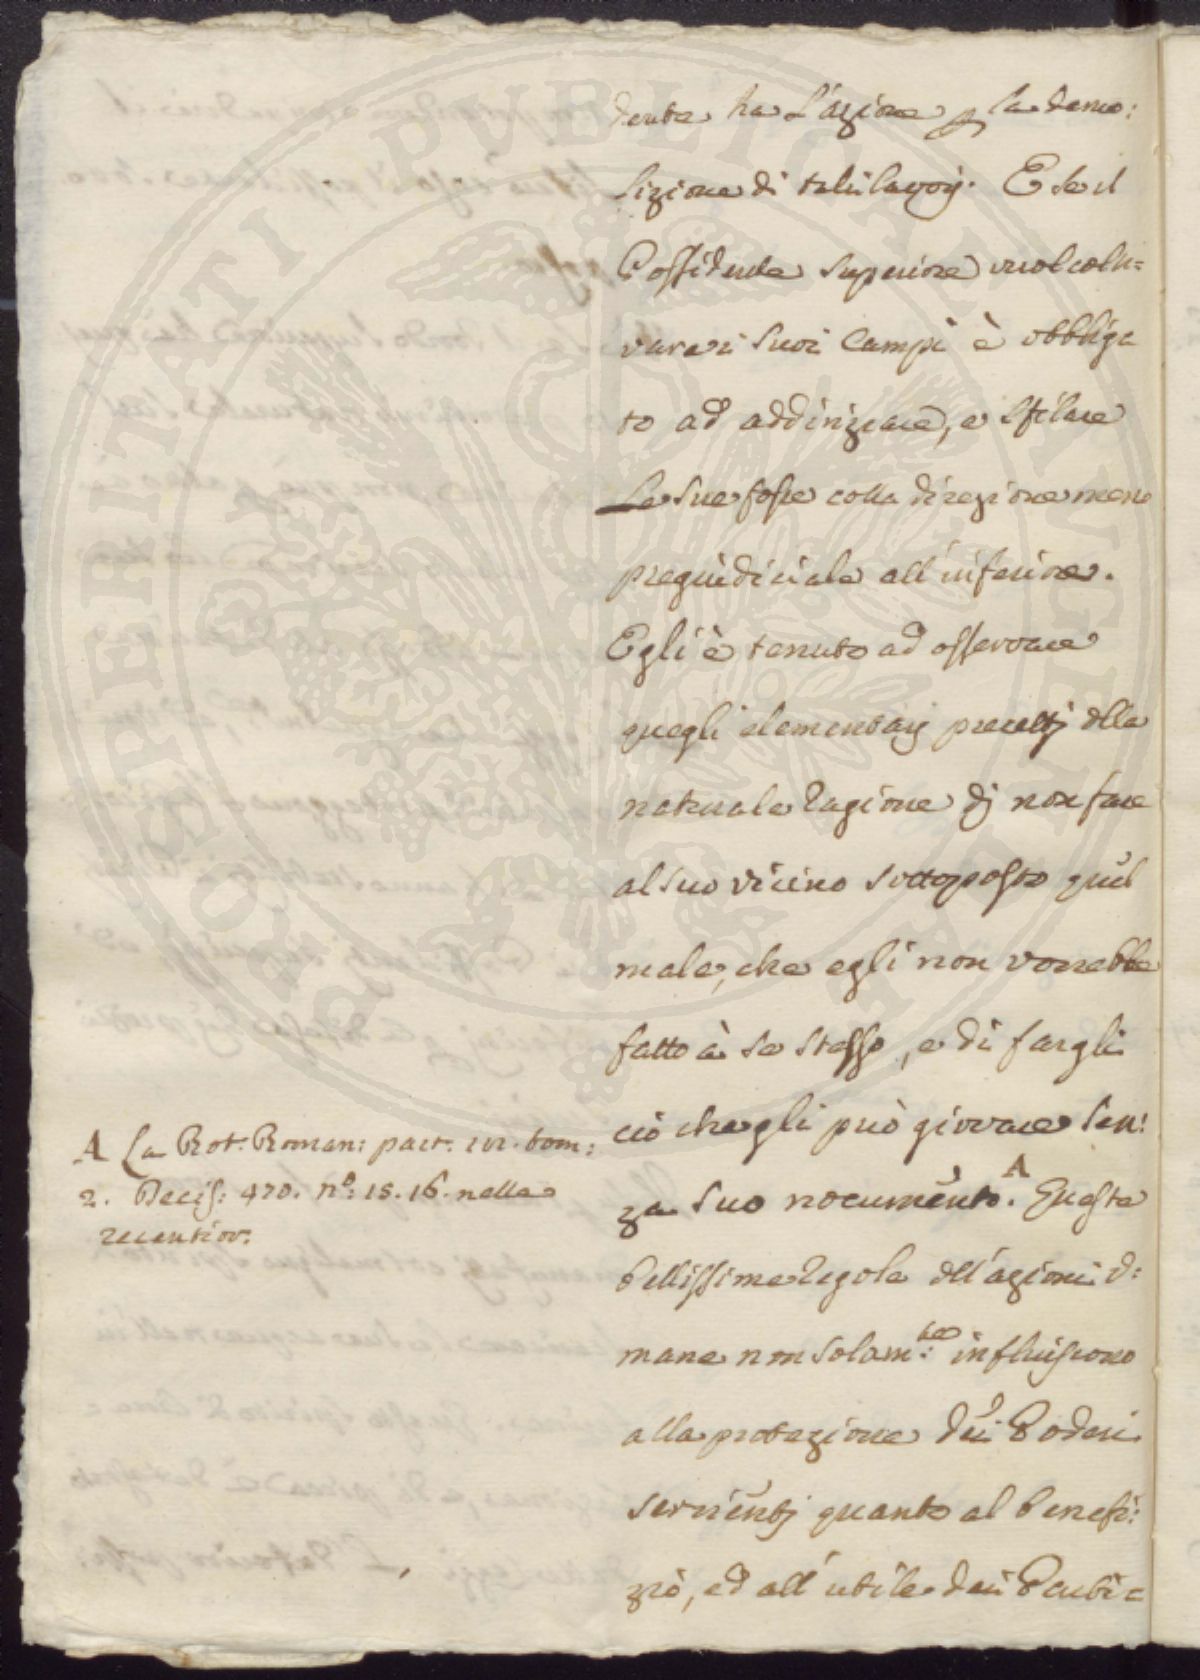 dente ha l'azione p la demo:
lizione di tali lavorj. E se il
Possidente superiore vuol colti=
vare i suoi Campi è obbliga
to ad addirizzare, e sfilare
Le sue fosse colla direzione meno
pregiudiciale all'inferiore.
Egli è tenuto ad osservare
quegli elementarj precettj dlla
naturale ragione dj non fare
al suo vicino sottoposto quel
male, che egli non vorrebbe
fatto à se stesso, e di fargli
ciò che gli può giovare sen:
za suo nocumento. A Queste
bellissime regole dll'azioni u:
mane non solam:te influiscono
alla protezione dei Poderi
servientj quanto al benefi:
zio, ed all'utile dei Parti=
A La Rot: Roman: part: IVI. tom:
2. Decis: 470. n°: 15. 16. nelle
recentior:
PROSPERITATI PVBLICAE AVGENDAE